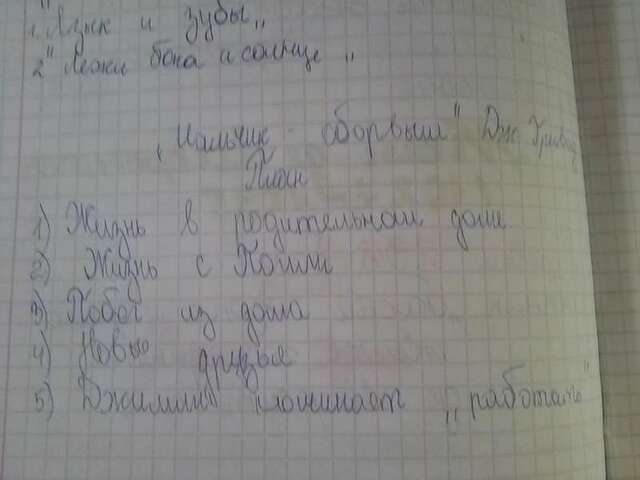 1 „Язык и зубы"
2 „ бока и солнце"
„Мальчик - оборвыш" Дж
План
1) Жизнь в родительском доме
2) Жизнь с Полли
3) Побег из дома
4) Новые друзья
5) Джимми начинает „работать"